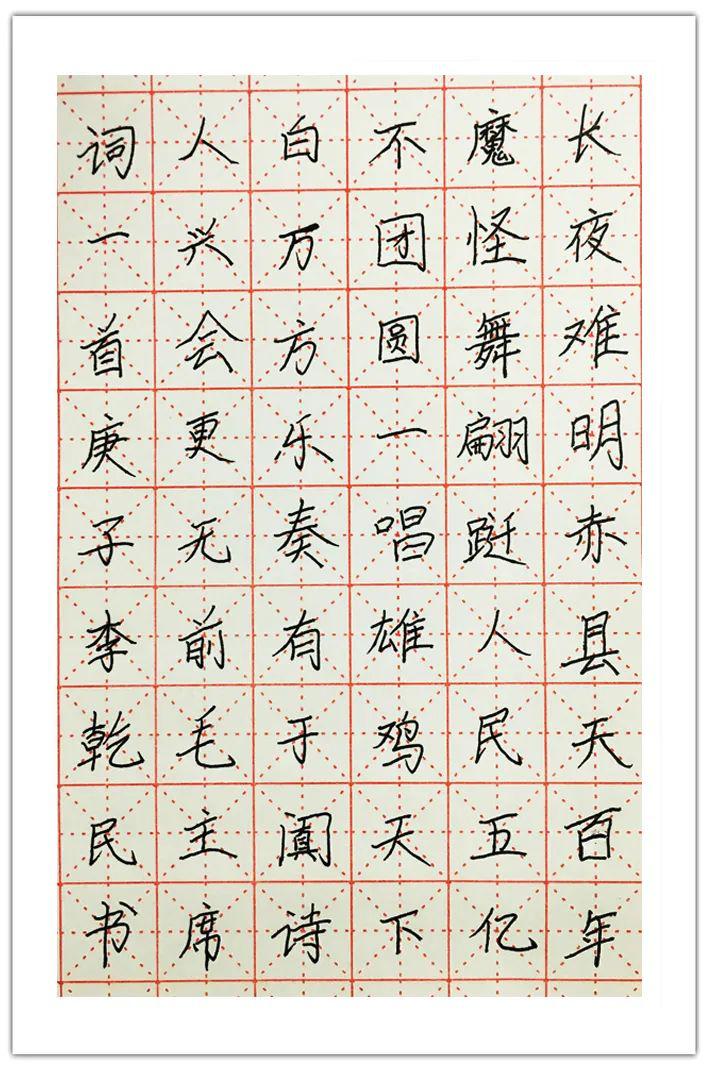 长夜难明赤县天百年
魔怪舞翩跹人民五亿
不团圆一唱雄鸡天下
白万方乐奏有于阗诗
人兴会更无前毛主席
词一首庚子李乾民书